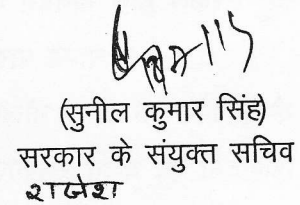 (सुनील कुमार सिंह)
सरकार के संयुक्त सचिव
राजेश